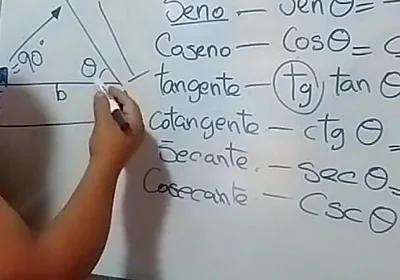 Seno — Sen θ =
Coseno — Cos θ = C
tangente — tg, tan θ
cotangente — ctg θ =
Secante. — sec θ =
Cosecante — Csc θ
90°
θ
b